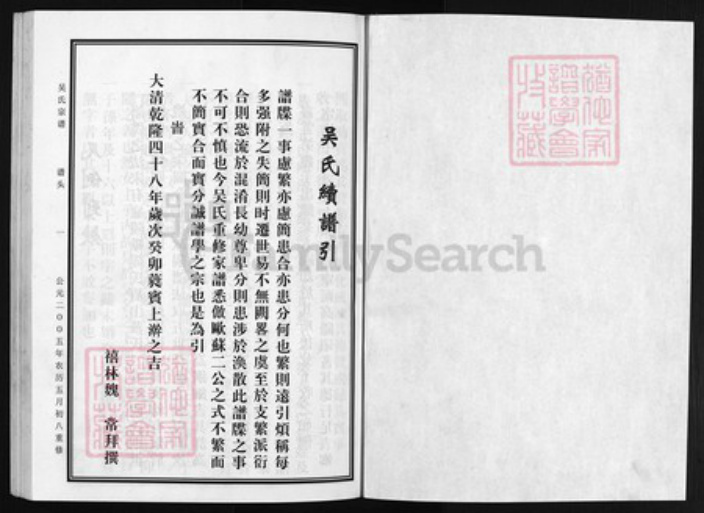 吴氏續譜引
譜牒一事慮繁亦慮簡患合亦患分何也繁則遠引煩稱每
多强附之失簡則时遷世易不無闕畧之虞至於支繁派衍
合則恐流於混淆長幼尊卑分則患涉於渙散此譜牒之事
不可不慎也今吴氏重修家譜悉倣歐蘇二公之式不繁而
不簡實合而實分誠譜學之宗也是為引
旹
大清乾隆四十八年歲次癸卯蕤賓上澣之吉
禧林魏 常拜撰
吴氏宗谱
谱头
一
公元二00五年农历五月初八重修
FamilySearch